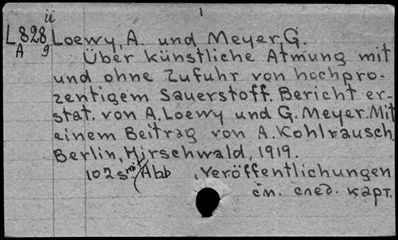 ii 1
L828 Loewy, A. und Meyer G.
A 9 Über künstliche Atmung mit
und ohne Zufuhr von hochpro-
zentigem Sauerstoff. Bericht er-
stat. von A. Loewy und G. Meyer. Mit
einem Beitrag von A. Kohlrausch
Berlin, Hirschwald, 1919.
102 s. mit Abb , Veröffentlichungen
см. след. карт.